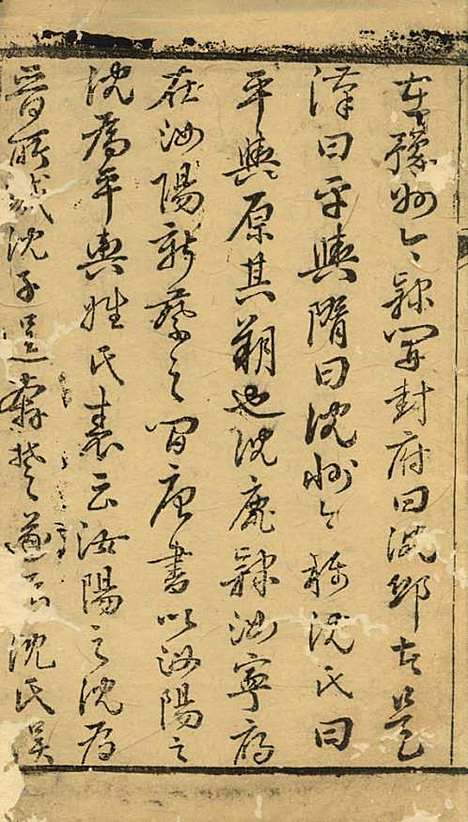 在豫州今隸開封府曰沈邱者是
漢曰平輿隋曰沈州今稱沈氏曰
平輿原其朔也沈鹿隸汝寧府
在汝陽新蔡之間唐書以汝陽之
沈為平輿姓氏表云汝陽之沈為
晉所滅沈子逞奔楚遂為沈氏誤